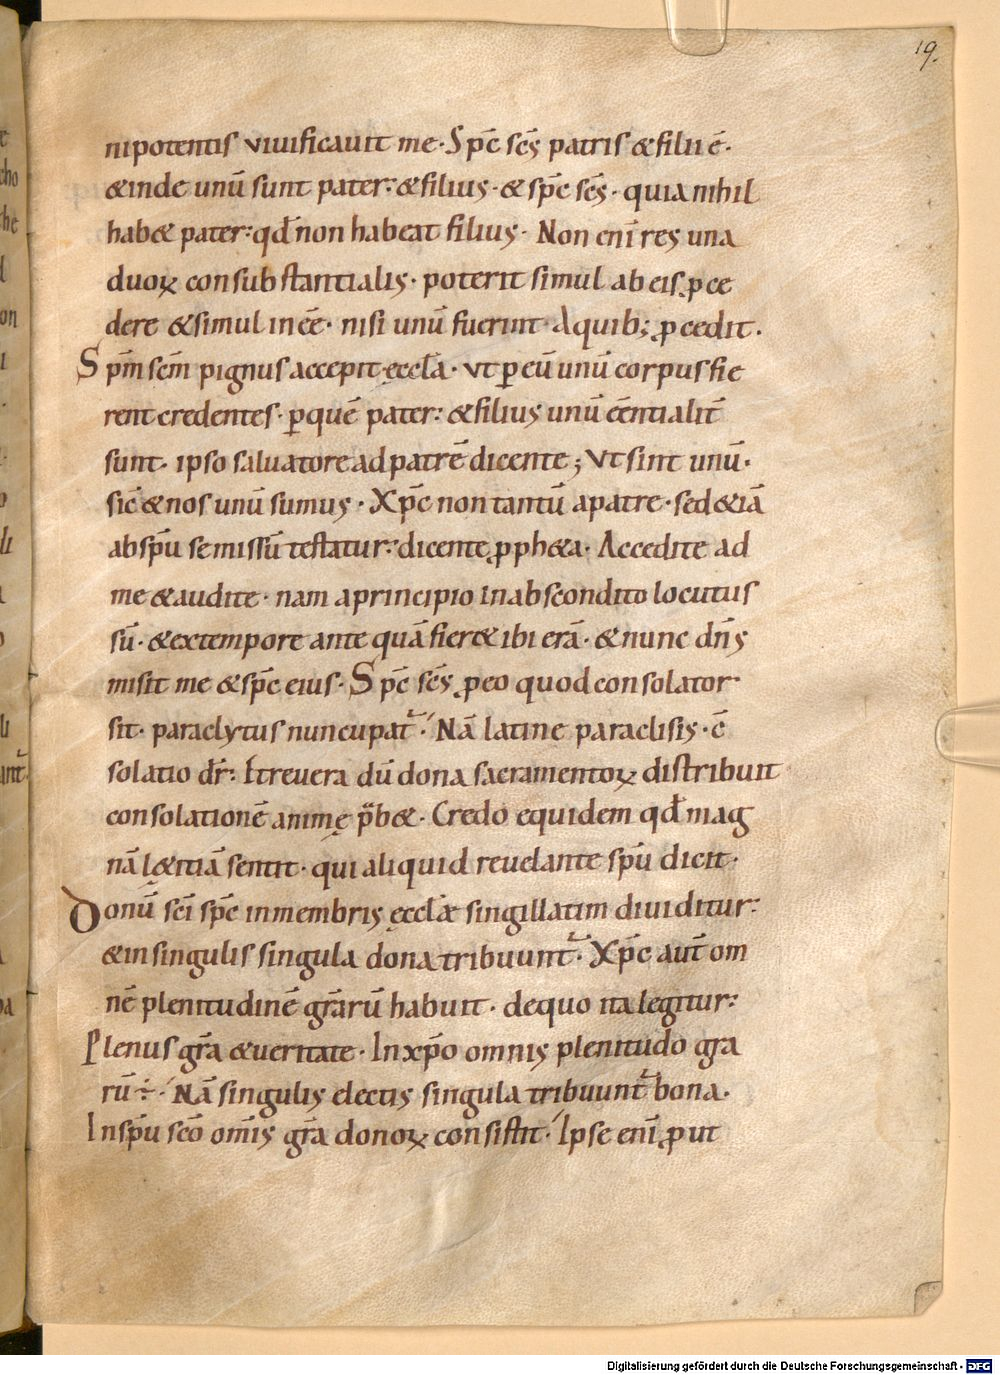 19.
nipotentis vivificauit me· Spc̄ scs̄ patris & filii ē·
& inde unū sunt pater: & filius· & spc̄ scs̄· quia nihil
hab& pater: qđ non habeat filius· Non eni̅ res una
duoꝝ consubstantialis· poterit simul ab eis ꝓce
dere & simul in eē· nisi unū fuerint· A quib; ꝓcedit·
Spm̄ scm̄ pignus accepit ęccła· vt ꝑ eū unū corpus fie
rent credentes· ꝑ quē pater: & filius unū eēntialit̄
sunt· ipso saluatore ad patrē dicente; vt sint unū·
sic̄ & nos unū sumus· Xpc̄ non tantū a patre· sed &iā
ab spū se missū testatur: dicente ꝓph&a· Accedite ad
me & audite· nam a principio in abscondito locutus
sū· & ex tempore ante quā fier& ibi erā· & nunc dn̄s
misit me & spc̄ eius· Spc̄ scs̄ ꝓ eo quod consolator
sit· paraclytus nuncupat̄· Nā latine paraclisis· c̄
solatio dr̄: & revera dū dona sacramentoꝝ distribuit
consolationē animę p̄b&· Credo equidem qđ mag
nā lętitiā sentit· qui aliquid reuelante spū dicit·
Donū sci̅ spc̄ in membris ęccłæ singillatim diuiditur:
& in singulis singula dona tribuunt̄· Xpc̄ aut̄ om
nē plenitudinē gr̄arū habuit· de quo ita legitur:
Plenus gr̄a & veritate· In xp̄o omnis plenitudo gr̄a
rū ÷· Nā singulis electis singula tribuunt̄ bona·
In spū sc̄o om̄is gr̄a donoꝝ consistit· Ipse eni̅ ꝓut
Digitalisierung gefördert durch die Deutsche Forschungsgemeinschaft - DFG